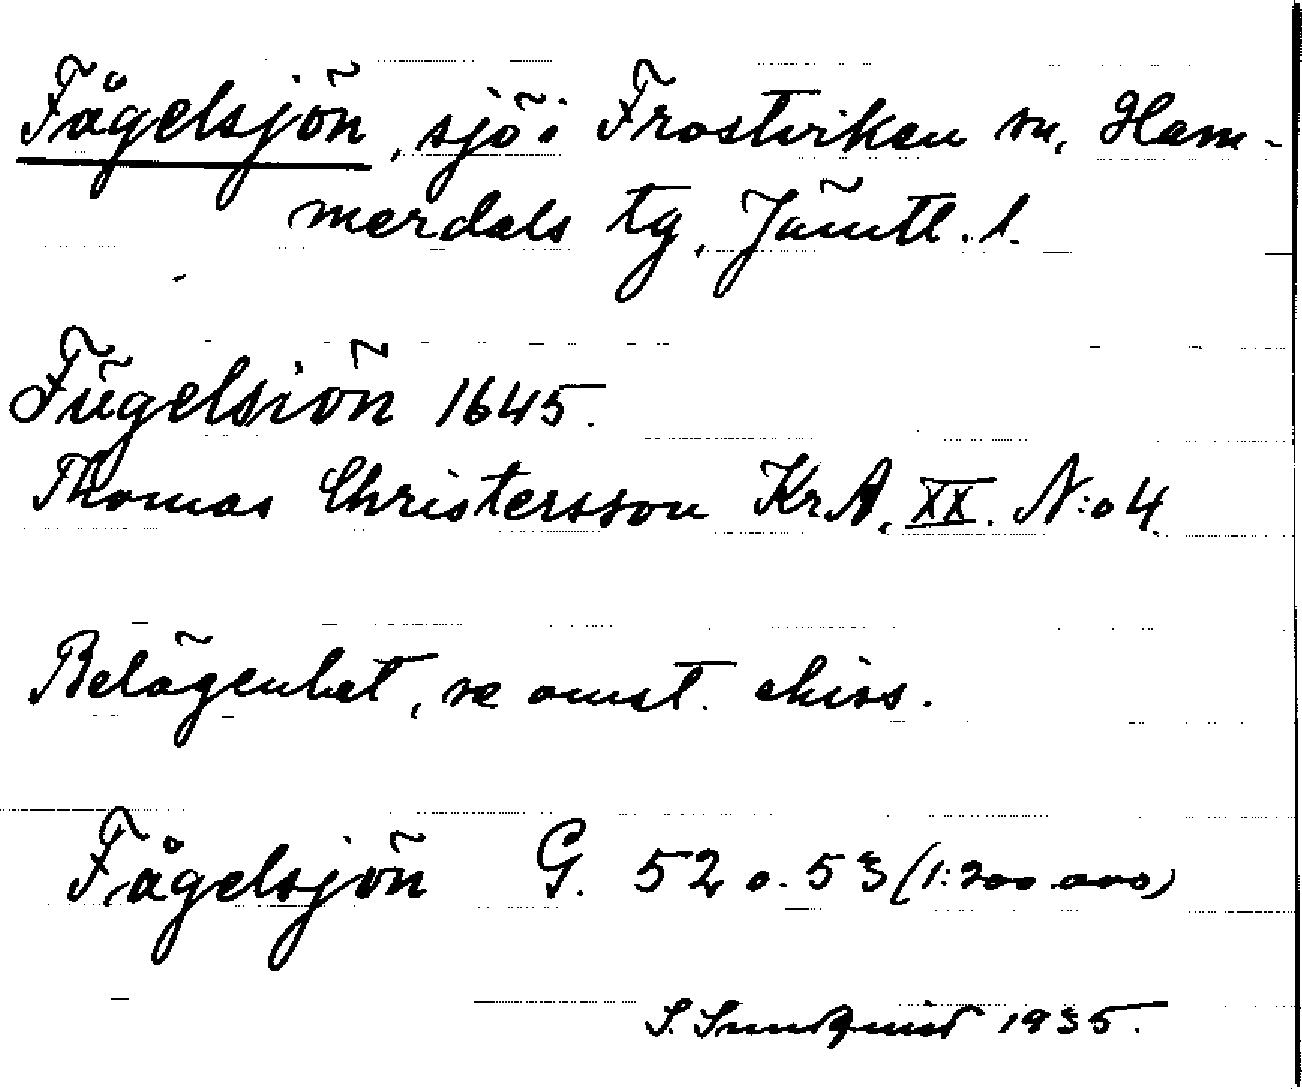 Fågelsjön, sjö i Frostviken sn, Ham-
merdals tg, Jämtl. l.
Fügelsiön 1645.
Thomas Christersson Kr A. XX. N:o 4.
Belägenhet, se omst. chiss.
Fågelsjön G. 52 o. 53 (1:200 000)
S. Sundquist 1935.